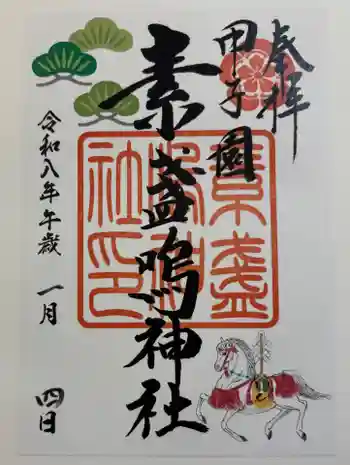 奉拝
甲子園
素盞嗚神社
素盞
嗚神
社印
令和八年午歳 一月 四日